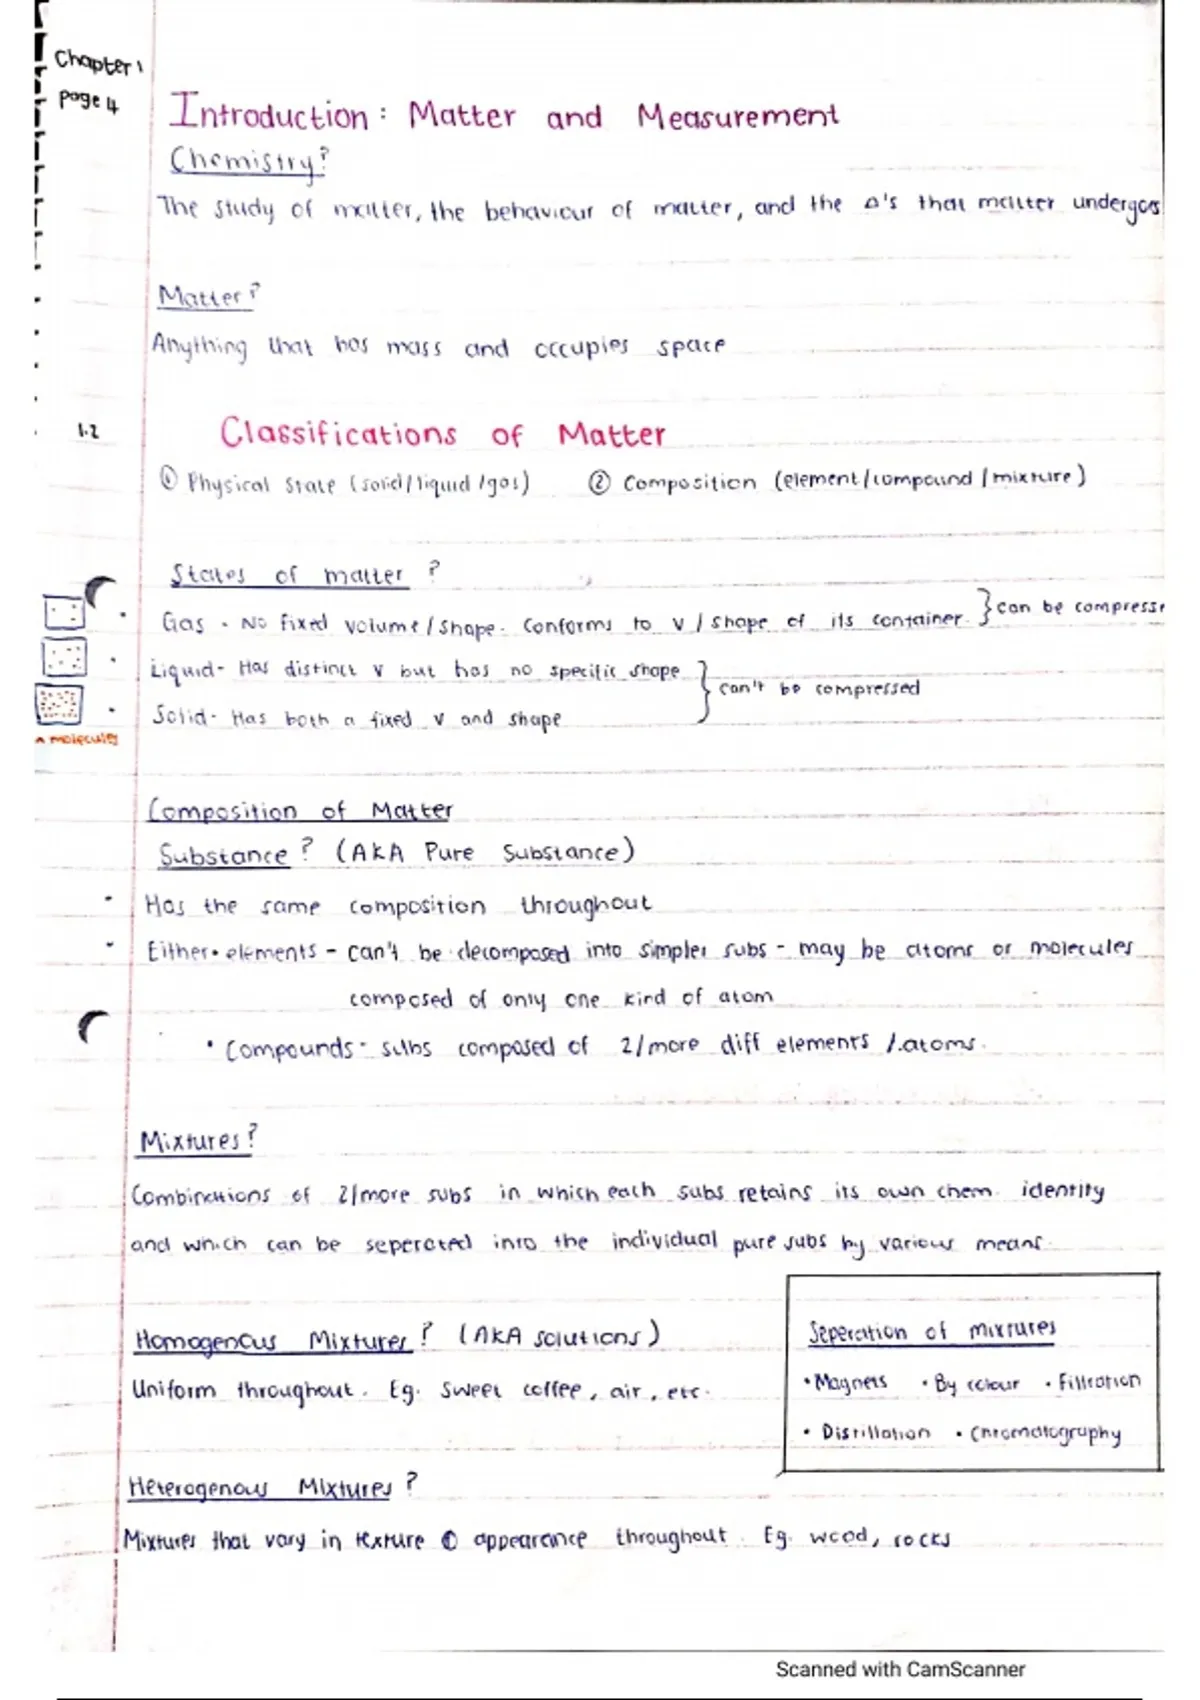 Chapter 1
page 4
Introduction : Matter and Measurement
Chemistry?
The study of matter, the behaviour of matter, and the Δ's that matter undergoes
Matter?
Anything that has mass and occupies space
1.2
Classifications of Matter
① Physical State (solid/liquid/gas) ② Composition (element/compound/mixture)
States of matter ?
Gas - No fixed volume/shape. Conforms to V/shape of its container. } can be compresse
Liquid - Has distinct V but has no specific shape
} can't be compressed
Solid - Has both a fixed V and shape
^ molecules
Composition of Matter
Substance? (AKA Pure Substance)
• Has the same composition throughout
• Either • elements - can't be decomposed into simpler subs - may be atoms or molecules
composed of only one kind of atom
• Compounds - subs composed of 2/more diff elements /.atoms.
Mixtures?
Combinations of 2/more subs in which each subs retains its own chem. identity
and which can be seperated into the individual pure subs by various means.
Homogenous Mixtures? (AKA solutions)
Uniform throughout. Eg. Sweet coffee, air, etc.
Seperation of mixtures
• Magnets • By colour • Filtration
• Distillation • Chromatography
Heterogenous Mixtures?
Mixtures that vary in texture & appearance throughout. Eg. wood, rocks
Scanned with CamScanner